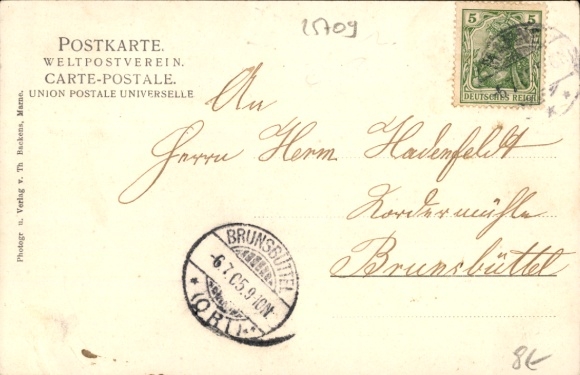 25709
POSTKARTE.
WELTPOSTVEREIN.
CARTE-POSTALE.
UNION POSTALE UNIVERSELLE
5 5
DEUTSCHES REICH
An
Herrn Herm Hadenfeldt
Nordermühle
Brunsbüttel
BRUNSBÜTTEL
-6.7.05.9-10V.
* (ORT) *
Photogr u. Verlag v. Th Backens, Marne.
8€